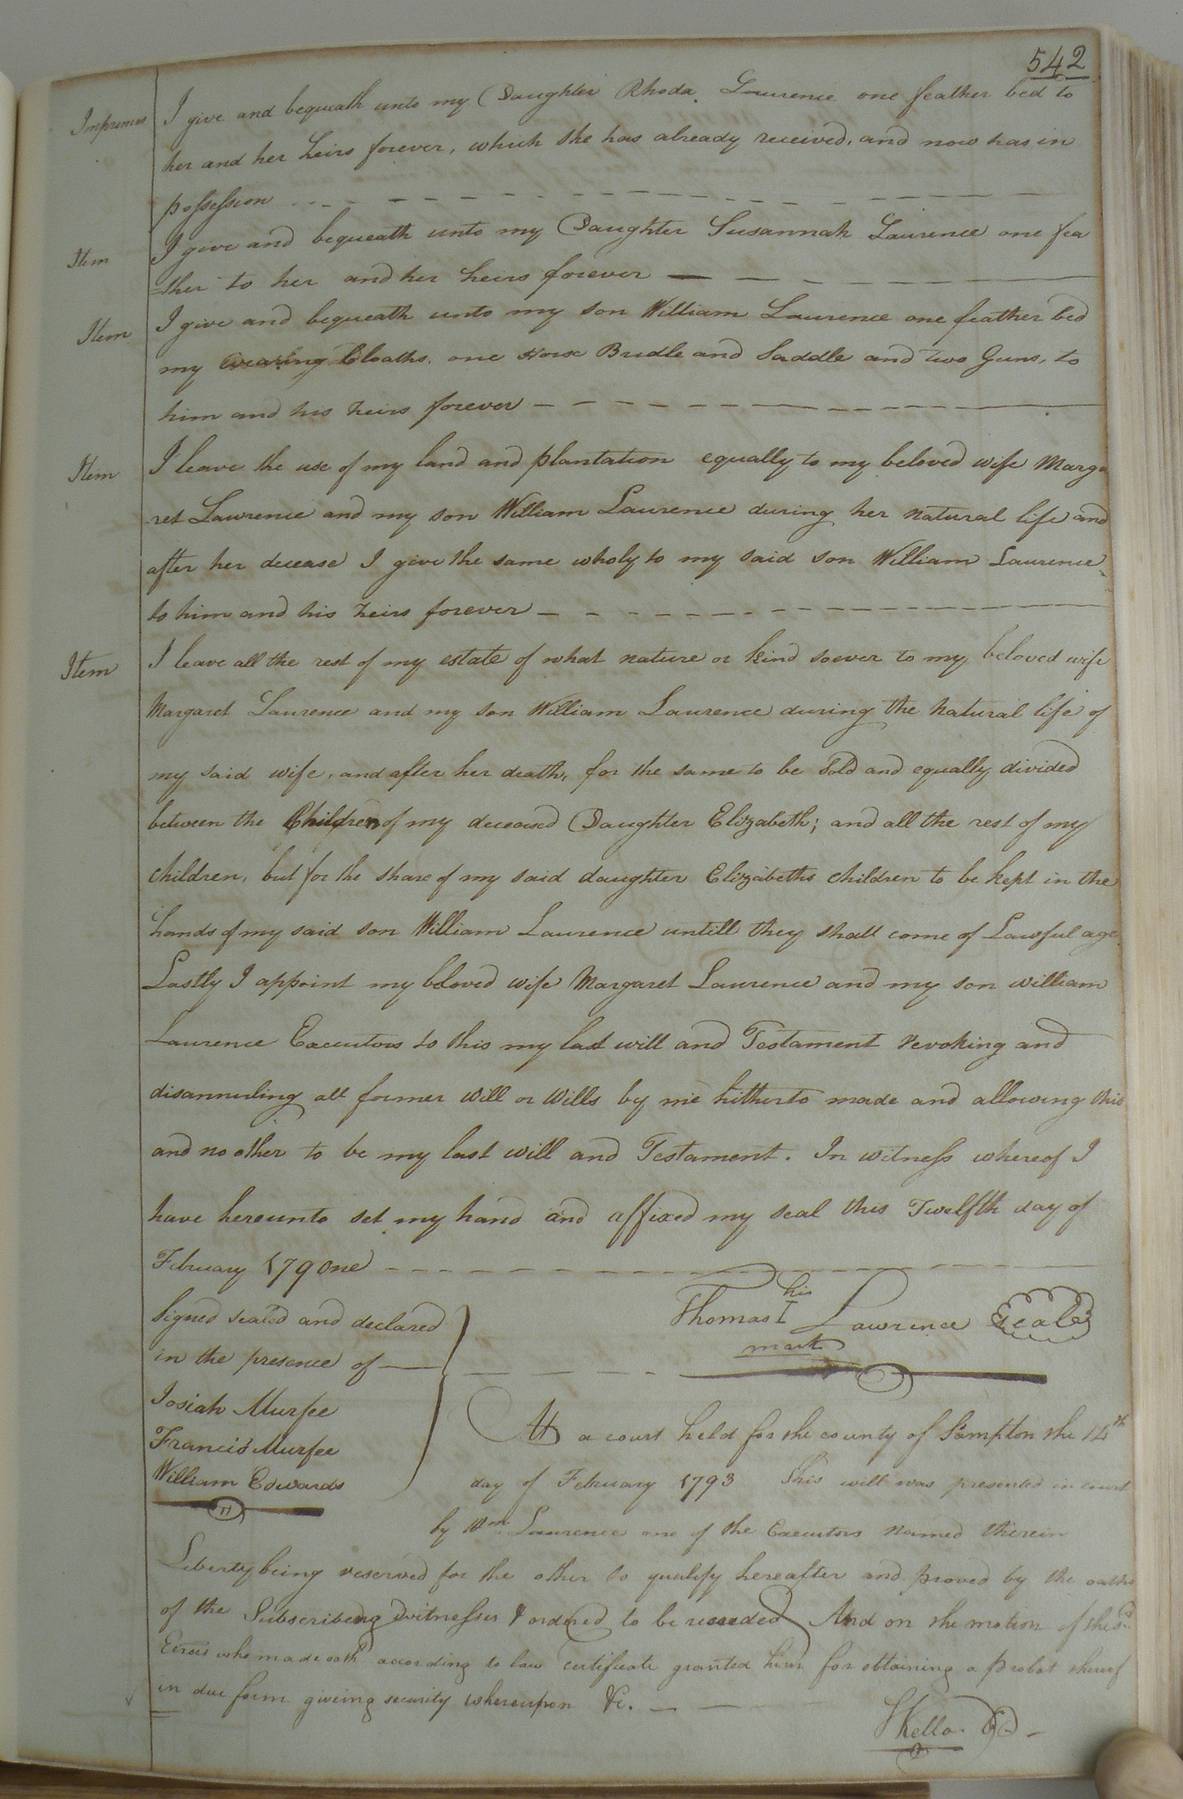 542
Imprimis I give and bequeath unto my Daughter Rhoda Laurence one feather bed to
her and her heirs forever, which she has already received, and now has in
possession
Item I give and bequeath unto my Daughter Susannah Laurence one fea
=ther to her and her heirs forever
Item I give and bequeath unto my son William Laurence one feather bed
my wearing Cloaths, one Horse Bridle and Saddle and two Guns, to
him and his heirs forever
Item I leave the use of my land and plantation equally to my beloved wife Marga
ret Laurence and my son William Laurence during her natural life and
after her decease I give the same wholy to my said son William Laurence
to him and his heirs forever
Item I leave all the rest of my estate of what nature or kind soever to my beloved wife
Margaret Laurence and my son William Laurence during the natural life of
my said wife, and after her death, for the same to be Sold and equally divided
between the Children of my deceased Daughter Elizabeth; and all the rest of my
children, but for the share of my said daughter Elizabeths children to be kept in the
hands of my said son William Laurence untill they shall come of Lawful age
Lastly I appoint my beloved wife Margaret Laurence and my son william
Laurence Executors to this my last will and Testament revoking and
disannuling all former Will or Wills by me hitherto made and allowing this
and no other to be my last will and Testament. In witness whereof I
have hereunto set my hand and affixed my seal this Twelfth day of
February 179one
Signed sealed and declared
in the presence of
Josiah Murfee
Francis Murfee
William Edwards
his
Thomas I Lawrence Seal
mark
At a court held for the county of Sampton the 14th
day of February 1793 This will was presented in court
by Wm Laurence one of the Executors named therein
Liberty being reserved for the other to qualify hereafter and proved by the oaths
of the Subscribeing witnesses & ordered to be recorded And on the motion of the sd
who made oath according to law certificate granted him for obtaining a probat thereof
in due form giveing security whereupon &c.